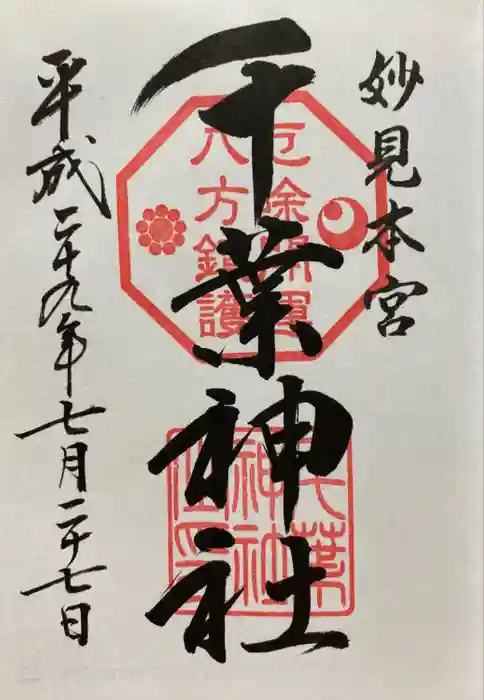 妙見本宮
厄除開運
八方鎮護
千葉神社
千葉
神社
平成二十九年七月二十七日